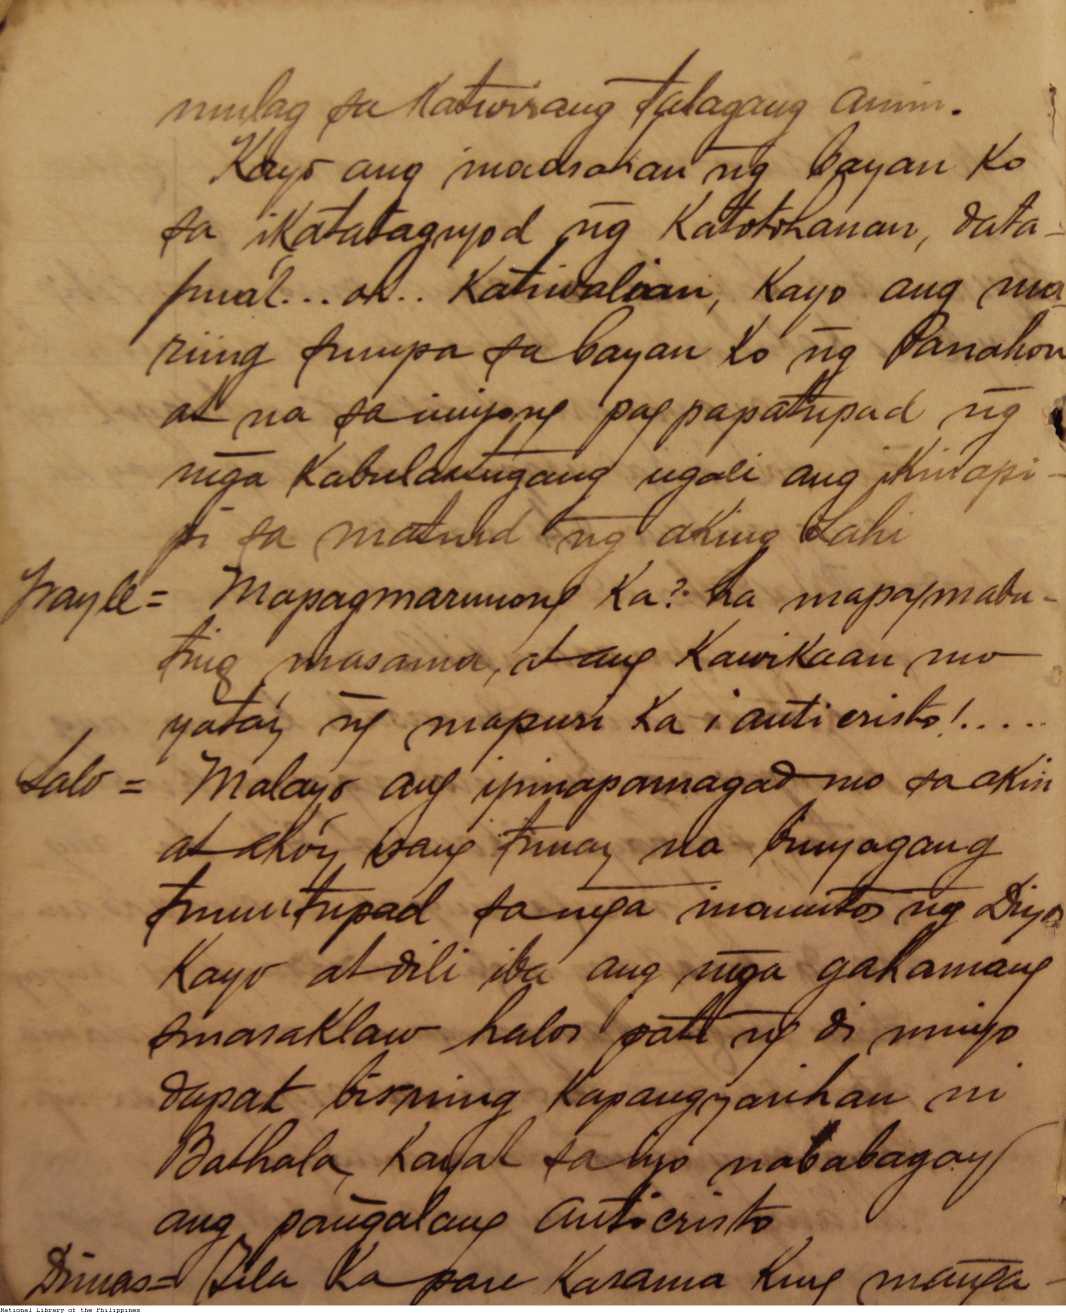 mulag sa katwirang talagang amin.
Kayo ang inaasahan ng bayan ko
sa ikatataguyod ng Katotohanan, data-
pua't... oh.. Katiwalian, Kayo ang ma-
ring sumupa sa bayan ko ng Panahon
at na sa iniyong pagpapatupad ng
mga Kabulastugang ugali ang ikinapi-
pi sa matuid ng aking Lahi
Frayle = Mapagmarunong Ka? ha mapagmabu-
ting masama, at ang Kawikaan mo
yata'y ng mapuri ka ¡anticristo!.....
Lalo = Malayo ang ipinapamagad mo sa akin
at ako'y isang tunay na binyagang
tumutupad sa mga iniuutos ng Diyos
Kayo at dili iba ang mga gahamang
sumasaklaw halos pati ng di ninyo
dapat bisning Kapangyarihan ni
Bathala, Kaya't sa iyo nababagay
ang pangalang anticristo
Dimas = Tila Ka pare Kasama Kung manga-
National Library of the Philippines